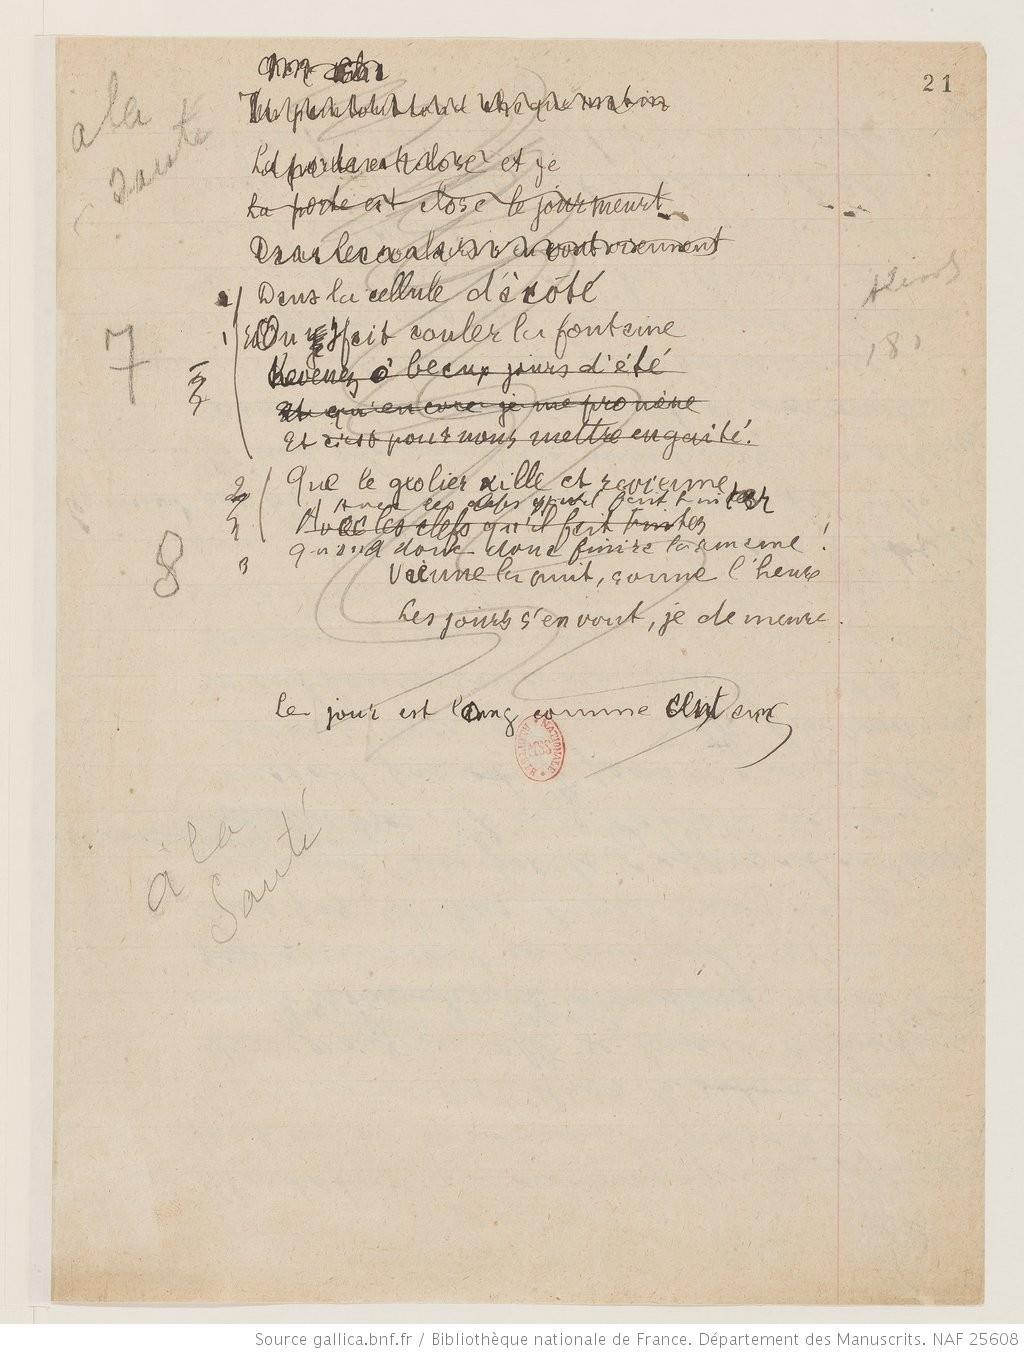 21
à la
Santé
La porte est close et je
La porte est close le jour meurt
Dans la cellule d'à côté
On y fait couler la fontaine
Revenez ô beaux jours d'été
Et qu'encore je me promène
Et c'est pour nous mettre en gaité.
7
Que le geolier aille et revienne
Avec les clefs qu'il fait tinter
Avec les clefs qu'il fait tinter
Quand donc donc finira la semaine !
3
8
Vienne la nuit, sonne l'heure
Les jours s'en vont, je demeure.
Le jour est long comme cent ans
BIBLIOTHÈQUE NATIONALE MSS
à la
Santé
Source gallica.bnf.fr / Bibliothèque nationale de France. Département des Manuscrits. NAF 25608